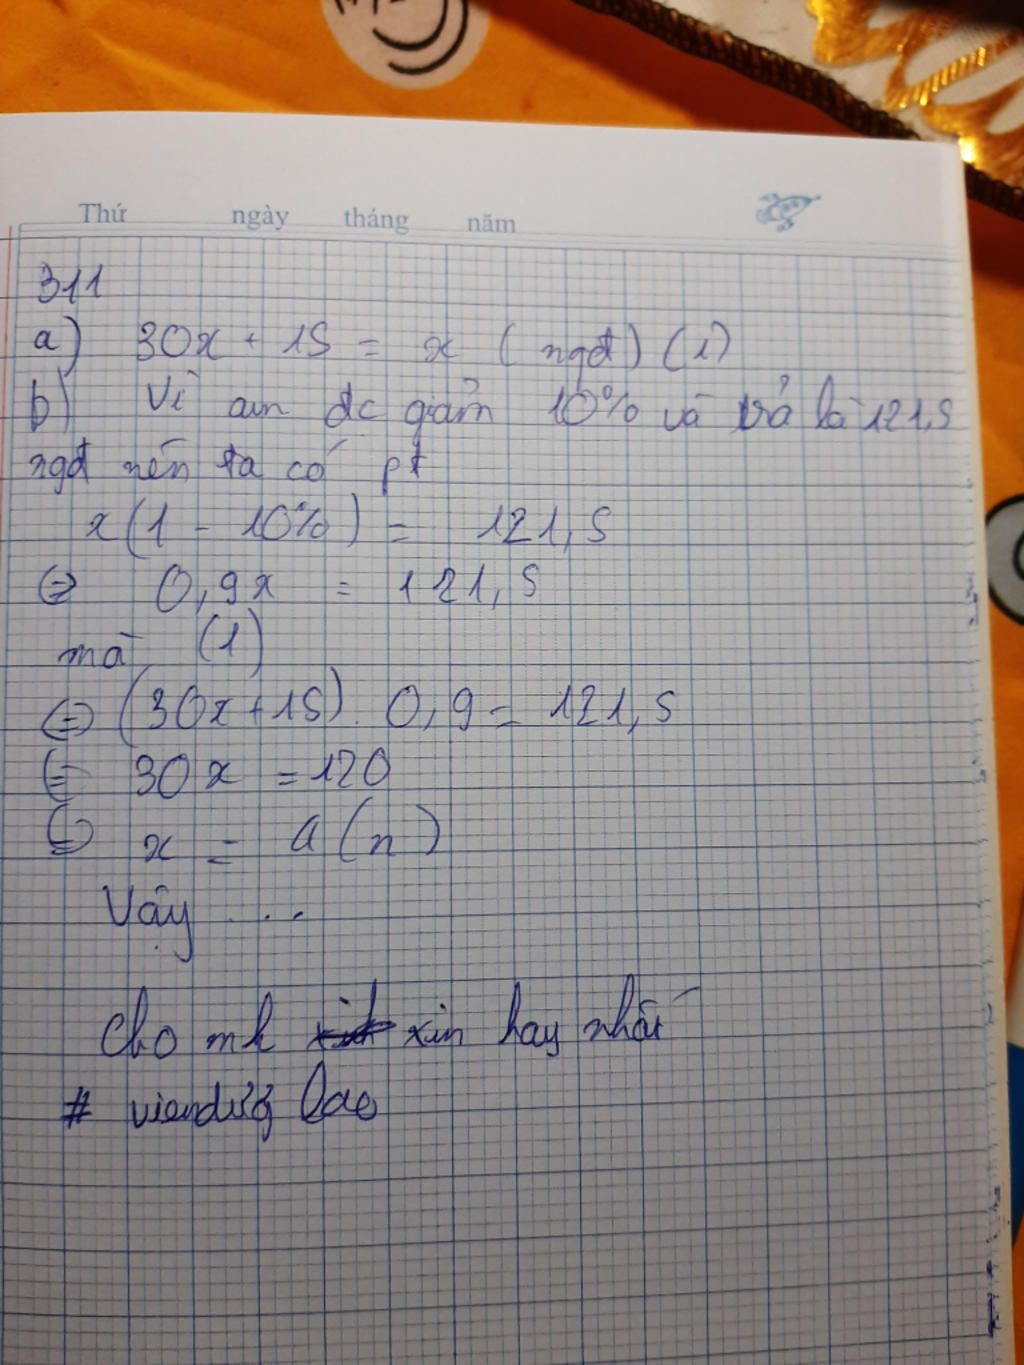 Thứ ngày tháng năm
311
a) 30x + 15 = x (ngđ) (1)
b) Vì an đc giảm 10% và trả là 121,5
ngđ nên ta có pt
x(1 - 10%) = 121,5
⇔ 0,9x = 121,5
mà (1)
⇔ (30x+15). 0,9 = 121,5
⇔ 30x = 120
⇔ x = 4 (n)
Vậy ...
Cho mk xin hay nhất
#